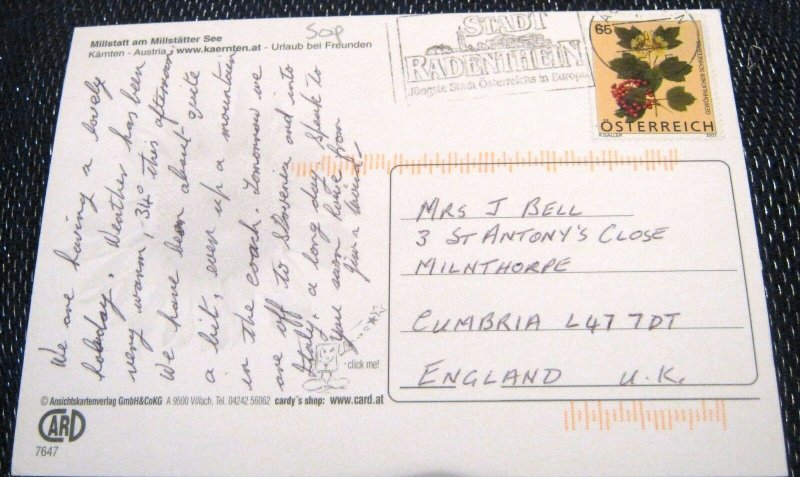 Millstatt am Millstätter See
Kärnten - Austria, www.kaernten.at - Urlaub bei Freunden
50p
STADT
RADENTHEIN
Jüngste Stadt Österreichs in Europa
65
ÖSTERREICH
2007
We are having a lovely
holiday. Weather has been
very warm, 34° this afternoon
We have been about quite
a bit, even up a mountain
in the coach. Tomorrow we
are off to Slovenia and into
Italy, a long day. Speak to
you soon love from
Jim &
MRS J BELL
3 ST ANTONY'S CLOSE
MILNTHORPE
CUMBRIA LA7 7DT
ENGLAND U.K.
-click me!
© Ansichtskartenverlag GmbH&CoKG A 9500 Villach, Tel. 04242 56062 cardy's shop: www.card.at
CARD
7647